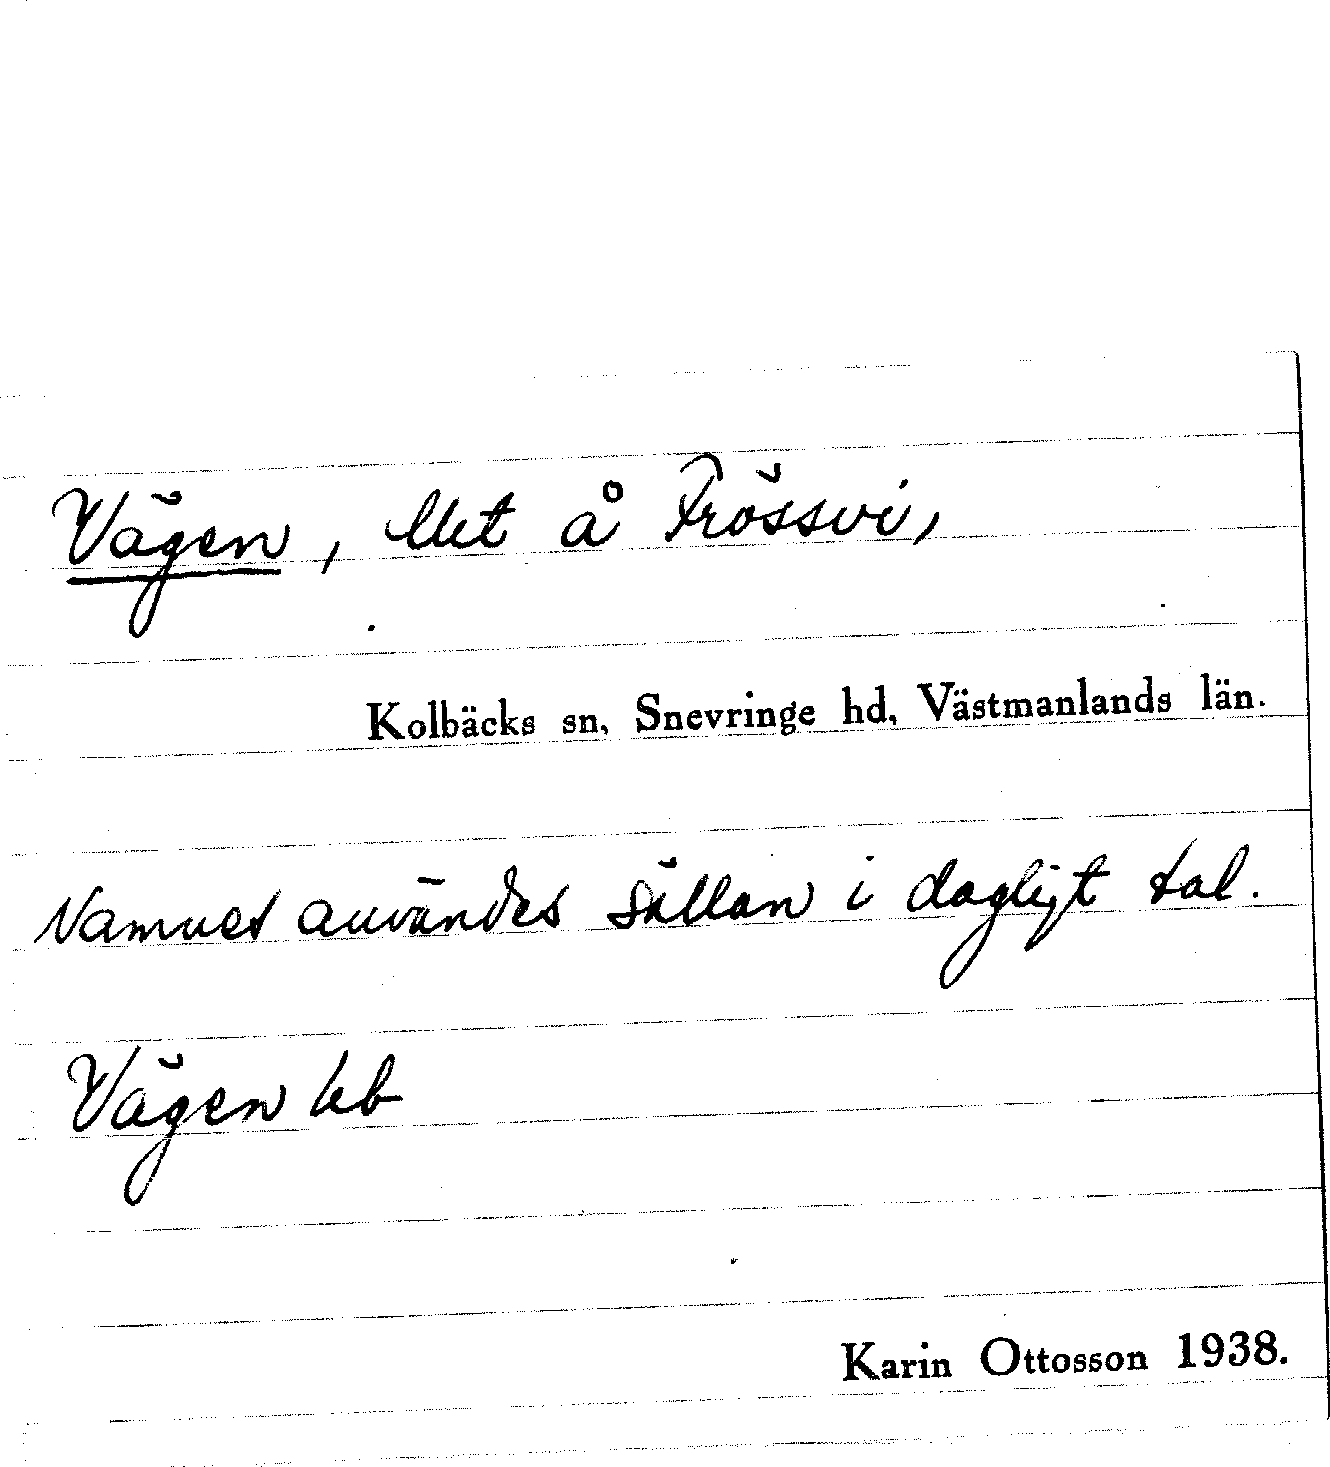 Vägen, å Frössvi,
Kolbäcks sn, Snevringe hd, Västmanlands län.
Namnet användes sällan i dagligt tal.
Vägen
Karin Ottosson 1938.